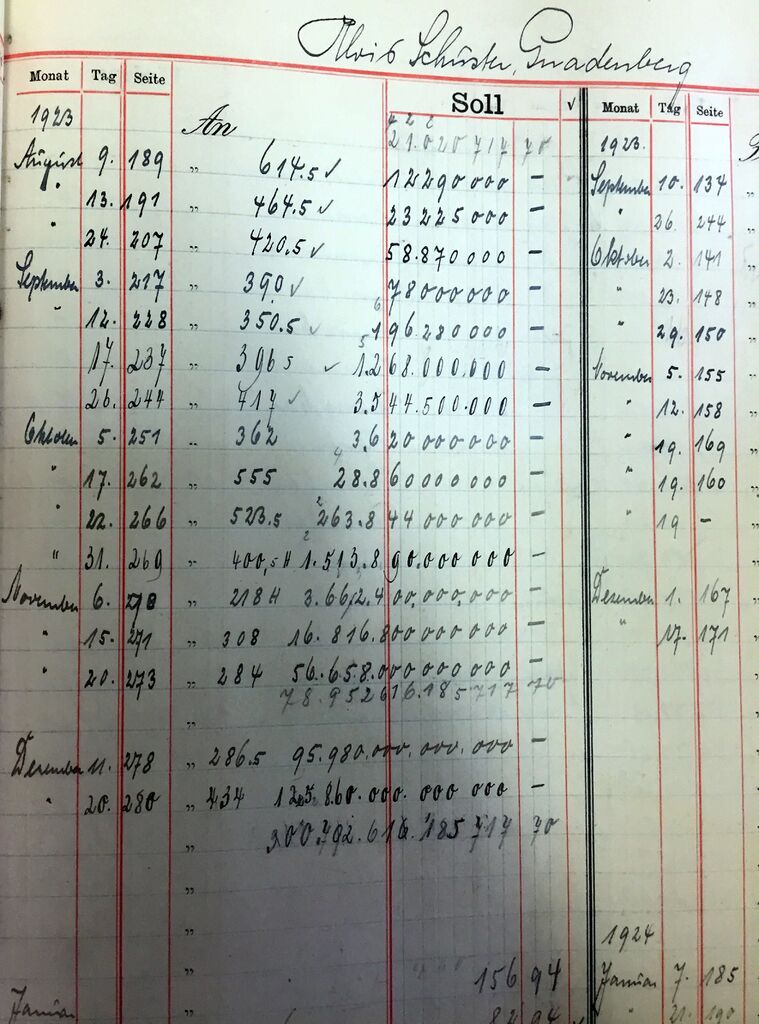 Alois Schuster, Gnadenberg
Monat Tag Seite Soll √ Monat Tag Seite
1923 An 21.020 717 70 1923.
August 9. 189 „ 614.5 √ 12 290 000 — September 10. 134
" 13. 191 „ 464.5 √ 23 225 000 — " 26. 244
" 24. 207 „ 420.5 √ 58.870 000 — Oktober 2. 141
September 3. 217 „ 390 √ 78 000 000 — " 23. 148
" 12. 228 „ 350.5 √ 196.280 000 — " 29. 150
17. 237 „ 396 5 √ 1.268.000.000 — November 5. 155
26. 244 „ 717 √ 3.544.500.000 — " 12. 158
Oktober 5. 251 „ 362 3.620 000 000 — " 19. 169
" 17. 262 „ 555 28.860 000 000 — " 19. 160
" 22. 266 „ 523.5 263.844 000 000 — " 19 —
" 31. 269 „ 400,5 H 1.513.890.000 000 —
November 6. „ 218 H 3.662.400,000,000 — Dezember 1. 167
" 15. 271 „ 308 16.816.800 000 000 — " 17. 171
" 20. 273 „ 284 56.658.000 000 000 —
78.952 616.185 717 70
„
Dezember 11. 278 „ 286.5 95.980.000.000.000 —
" 20. 280 „ 434 125.860.000.000 000 —
„ 300.792.616.185 717 70
„
„
„ 1924
„ 156 94 Januar 7. 185
Januar „ 82 94 " 21. 190